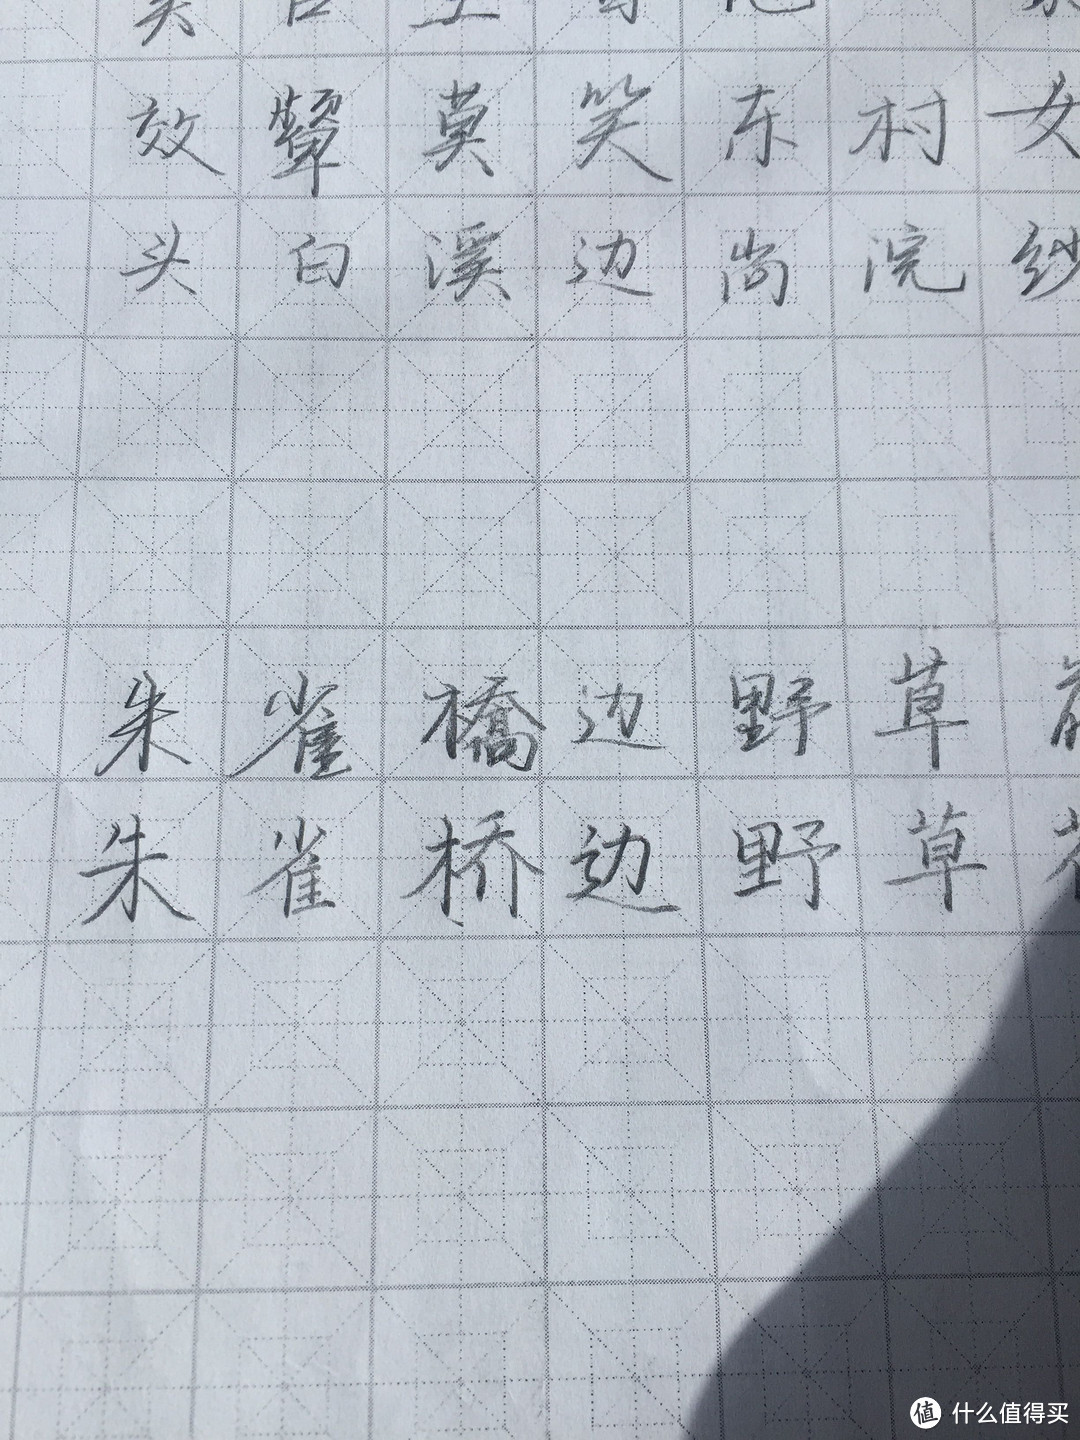 效颦莫笑东村女
头白溪边尚浣纱
朱雀橋边野草
朱雀桥边野草
值 什么值得买